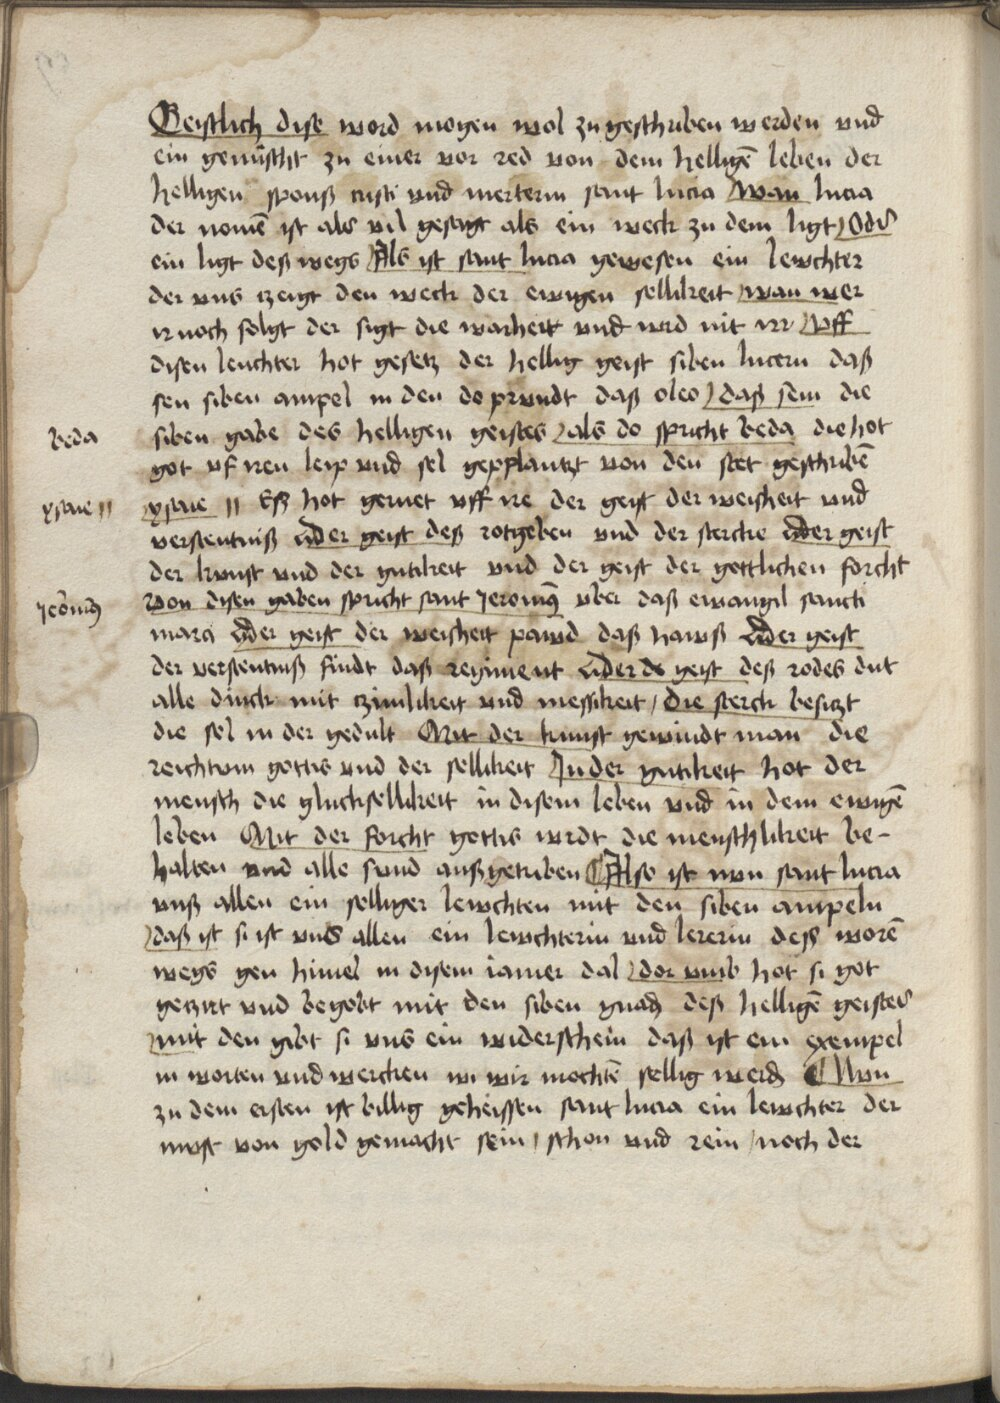 Geistlich dise word mogen wol zu geschriben werden vnd
ein gemischt zu einer vor red von dem helligē leben der
helligen sponß cristi vnd merterin sant lucia wan lucia
der nomē ist als vil gesagt als ein weck zu dem ligt oder
ein ligt deß wegs Als ist sant lucia gewesen ein lewchter
der vns czeigt den weck der ewigen sellikeit wan wer
ir noch folgt der sigt die warheit vnd wird nit irr vff
disen leuchter hot gesetz der hellig geist siben lucern daß
sen siben ampel in den do prundt daß oleo daß sein die
beda
siben gabe des helligen geistes als do spricht beda die hot
got vf iren leip vnd sel gepflantzt von den stet geschribē
ysaie 11
ysaie 11 Eß hot geruet vff ire der geist der weisheit vnd
verstentniß der geist deß rotgeben vnd der stercke der geist
der kunst vnd der gutikeit vnd der geist der gottlichen forcht
Jeronimus
von disen gaben spricht sant Jeronimus vber daß ewangil sancti
marci der geist der weisheit pawd daß hawß der geist
der verstentniß findt daß regiment der geist deß rodes dut
alle dinck mit czimlikeit vnd messikeit / die sterck besitzt
die sel in der gedult Mit der kunst gewindt man die
reichtum gottis vnd der sellikeit In der gutikeit hot der
mensch die glucksellikeit in disem leben vnd in dem ewigē
leben Mit der forcht gottis wirdt die menschlikeit be-
halten vnd alle sund außgetriben Also ist nun sant lucia
vnß allen ein selliger lewchten mit den siben ampeln
daß ist si ist vns allen ein lewchterin vnd lererin deß worē
wegs gen himel in disem iamer dal dor vmb hot si got
geczirt vnd begobt mit den siben gnad deß helligē geistes
mit den gibt si vns ein widerschein daß ist ein exempel
in worten vnd wercken wi wir mochtē sellig werd Nun
zu dem ersten ist billig geheissen sant lucia ein lewchter der
must von gold gemacht sein / schon vnd rein / noch der